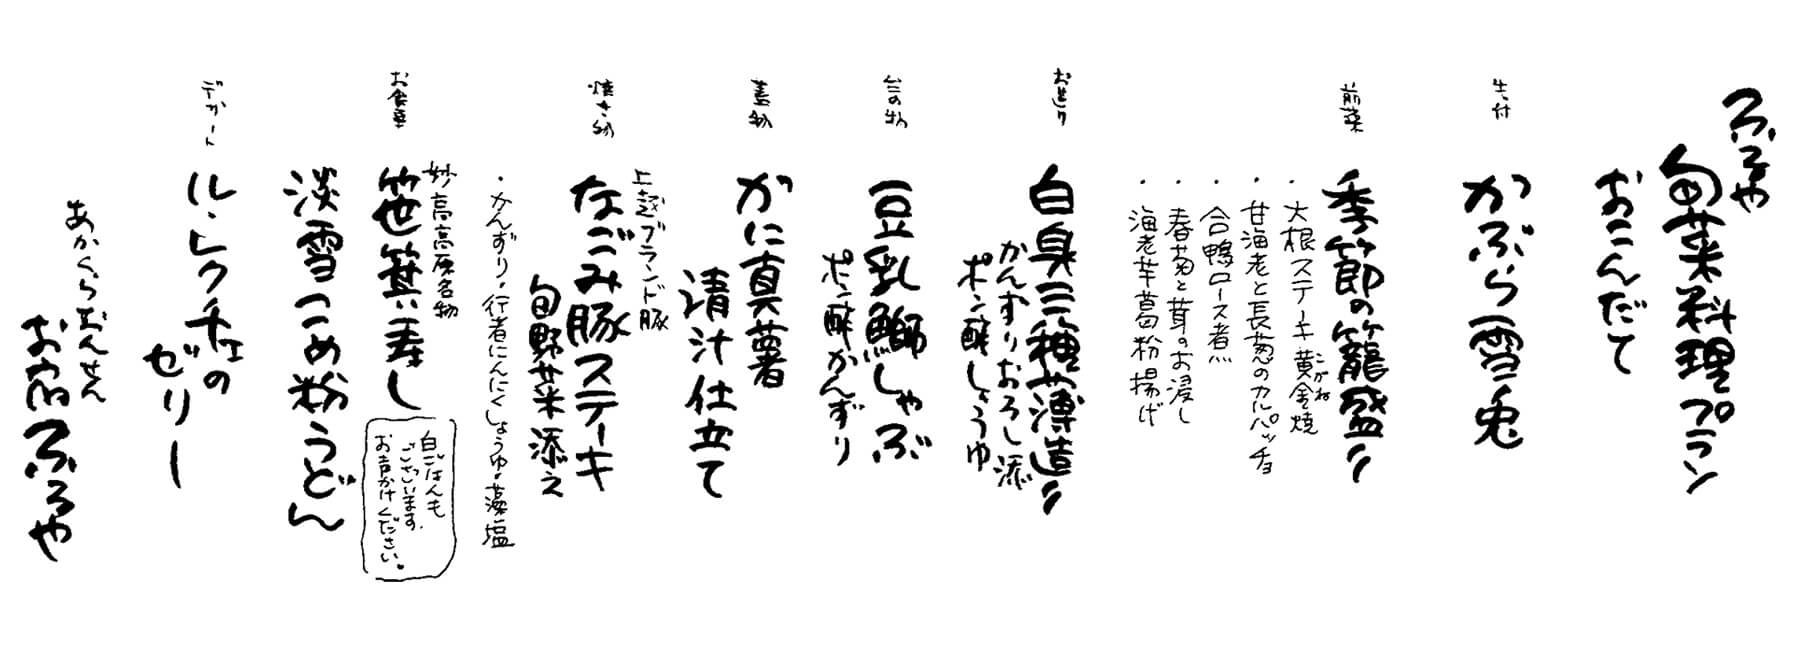 ふるや
旬菜料理プラン
おこんだて
先付
かぶら雪兎
前菜
季節の籠盛り
・大根ステーキ黄金焼
こがね
・甘海老と長葱のカルパッチョ
・合鴨ロース煮
・春菊と茸のお浸し
・海老芋葛粉揚げ
お造り
白身三種薄造り
かんずりおろし添
ポン酢しょうゆ
台の物
豆乳鰤しゃぶ
ポン酢かんずり
蓋物
かに真薯
清汁仕立て
焼き物
上越ブランド豚
なごみ豚ステーキ
旬野菜添え
・かんずり・行者にんにくしょうゆ・藻塩
お食事
妙高高原名物
笹箕寿し
白ごはんも
ございます。
お声かけください。
淡雪こめ粉うどん
デザート
ル・レクチェの
ゼリー
あかくらおんせん
お宿ふるや